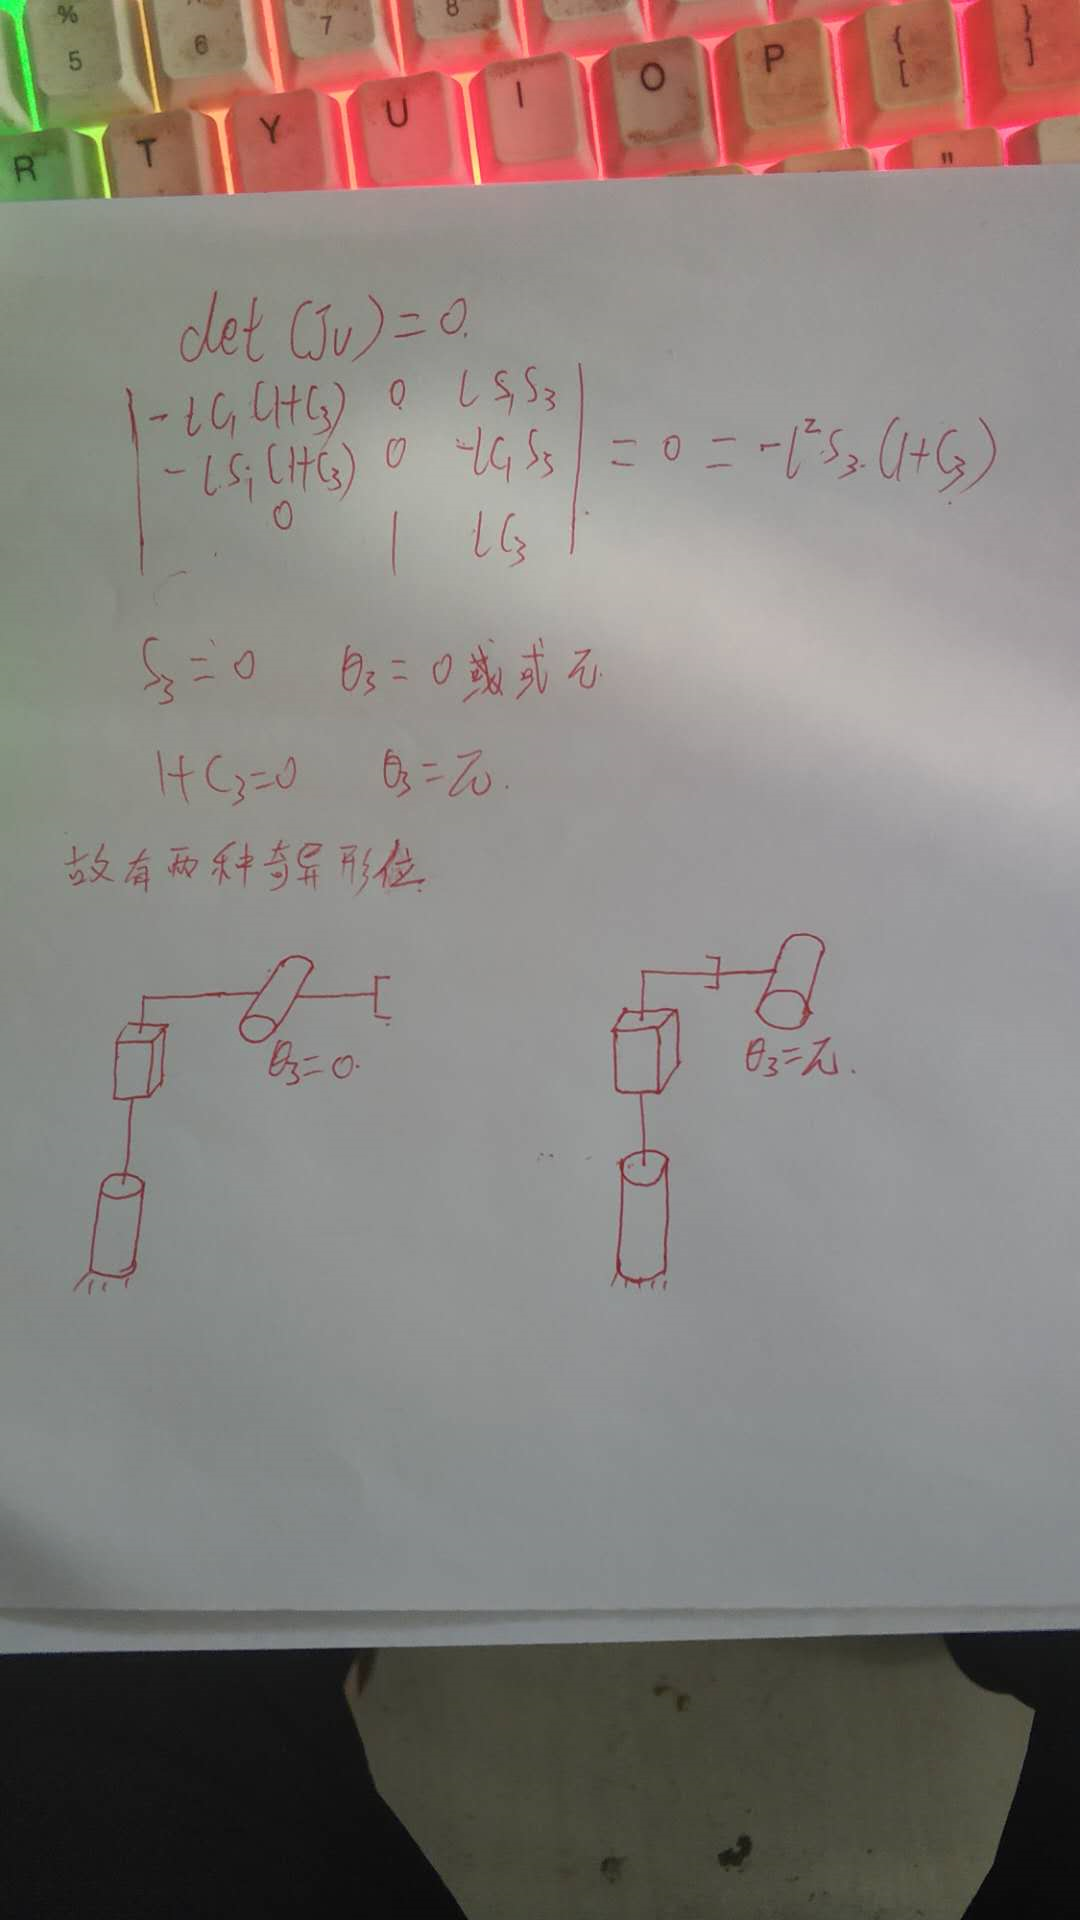 % 5
6
7
8
{ [
} ]
R T Y U I O P
"
det (Jv) = 0.
-lC₁(1+C₃) 0 lS₁S₃
-lS₁(1+C₃) 0 -lC₁S₃ = 0 = -l²S₃.(1+C₃)
0 1 lC₃
S₃ = 0 θ₃ = 0 或 π.
1+C₃=0 θ₃=π.
故有两种奇异形位
θ₃=0. θ₃=π.